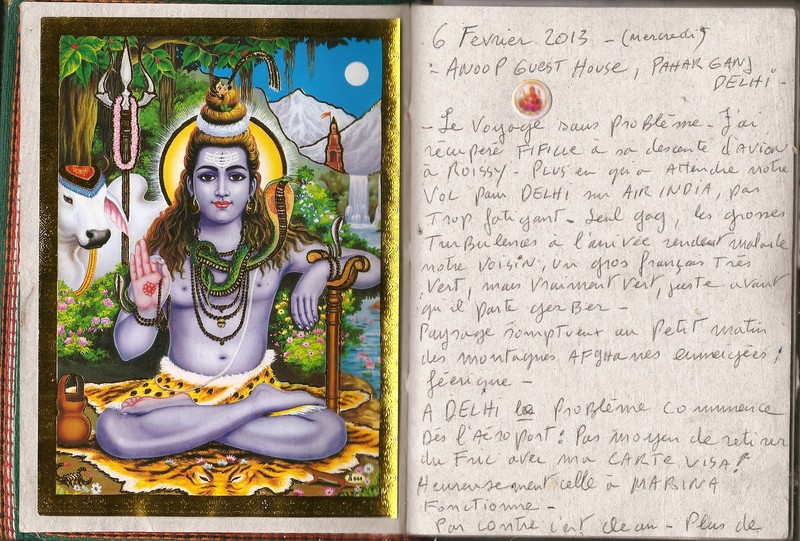 6 Fevrier 2013 - (mercredi)
- ANOOP GUEST HOUSE, PAHAR GANJ
DELHI -
- Le Voyage sans problème - J'ai
récupéré FIFILLE à sa descente d'AVION
à ROISSY - Plus en qu'a Attendre notre
VOL pour DELHI sur AIR INDIA, pas
Trop fatigant - Seul gag, les grosses
Turbulences à l'arrivée rendent malade
notre VOISIN, un gros français Très
vert, mais vraiment vert, juste avant
qu'il parte gerBer -
Paysage somptueux au Petit matin
des montagnes AFghanes enneigées,
féerique -
A DELHI le Problème commence
Dès l'Aéroport : Pas moyen de retirer
du Fric avec ma CARTE VISA !
Heureusement celle à MARINA
Fonctionne -
Par contre c'est clean - Plus de
A 844